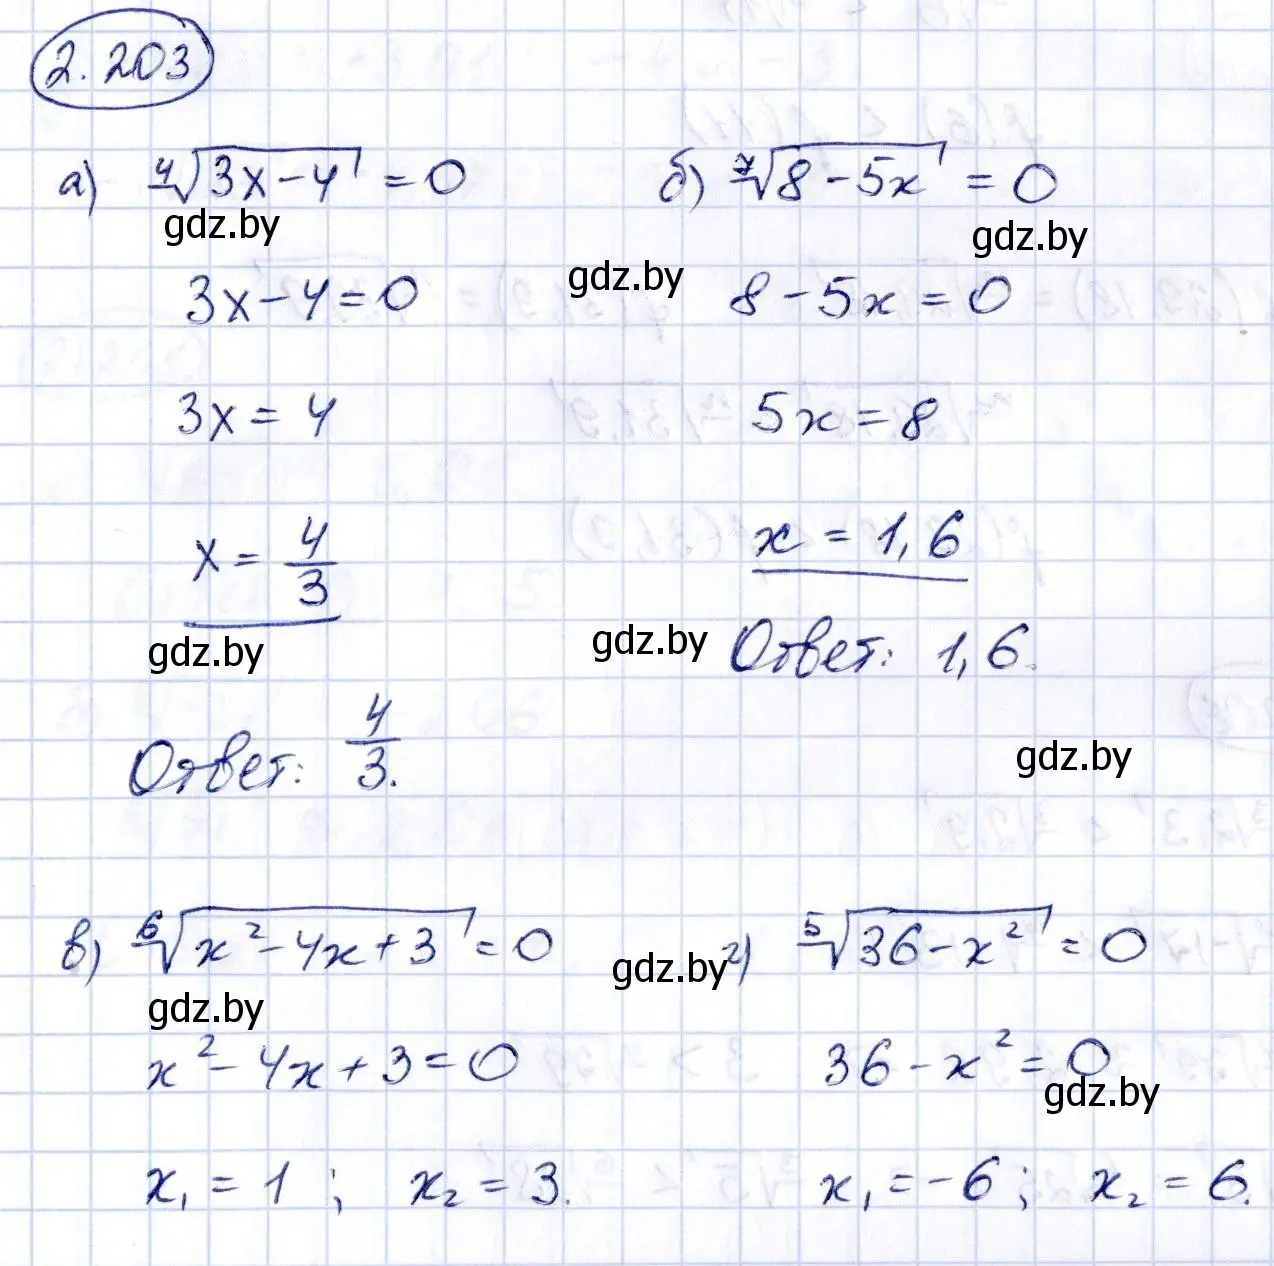 2.203
а) ∜(3x-4) = 0
gdz.by
3x-4=0
3x = 4
x = 4/3
gdz.by
Ответ: 4/3.
б) ⁷√(8-5x) = 0
gdz.by
gdz.by
8-5x=0
5x=8
x = 1,6
gdz.by
Ответ: 1,6.
gdz.by
в) ⁶√(x²-4x+3) = 0
gdz.by
x²-4x+3=0
x₁ = 1 ; x₂ = 3.
gdz.by
г) ⁵√(36-x²) = 0
36-x²=0
gdz.by
x₁ = -6 ; x₂ = 6.